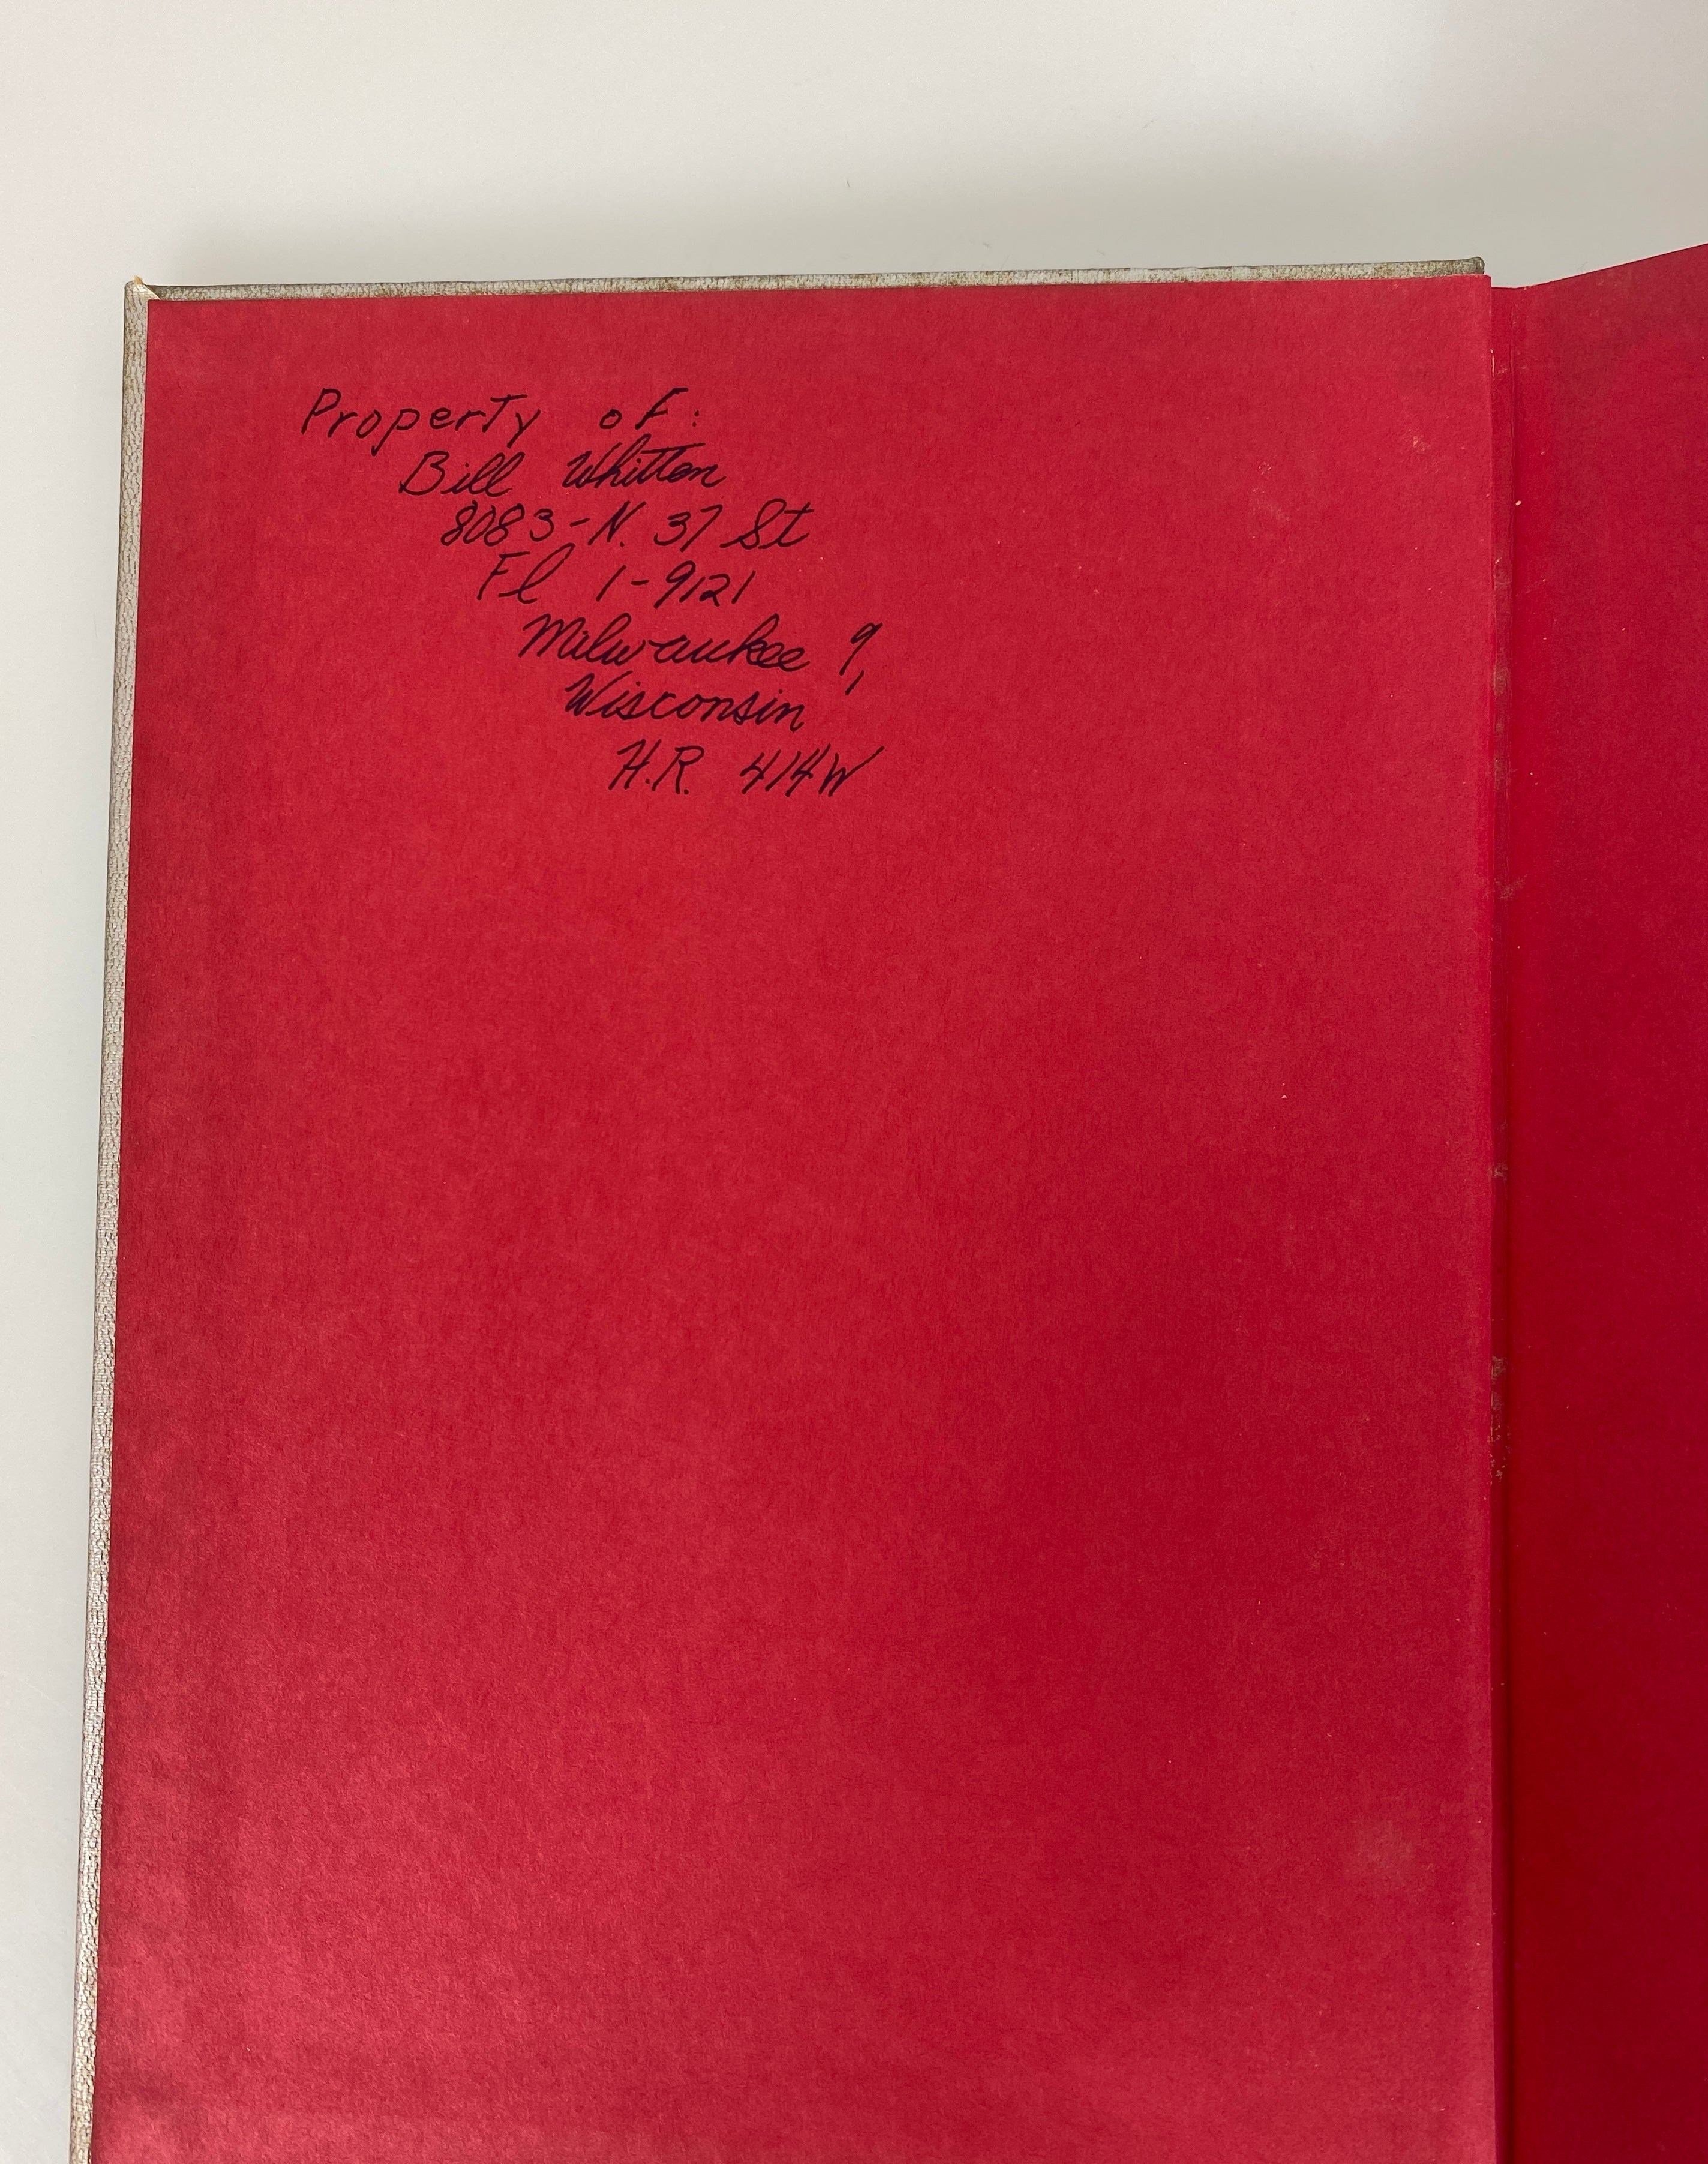 Property of:
Bill Whitten
8083-N. 37 St
Fl 1-9121
Milwaukee 9,
Wisconsin
H.R. 414W